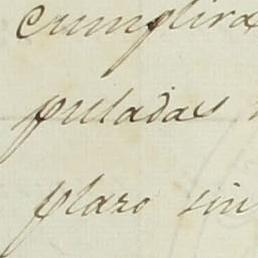 cumplira
puladas
plazo sin